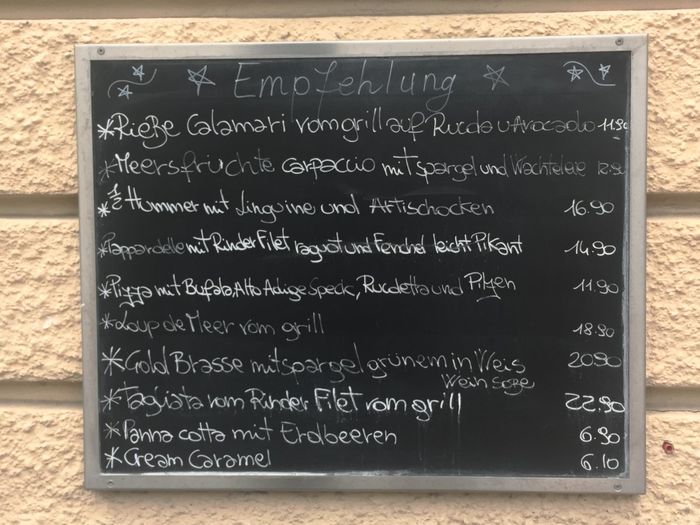 Empfehlung
*Rieße Calamari vom grill auf Rucola u Avocado 11.90
*Meersfrüchte carpaccio mit spargel und Wachteleie 12.90
*½ Hummer mit Linguine und Artischocken 16.90
*Pappardelle mit Rinder Filet ragout und Fenchel leicht Pikant 14.90
*Pizza mit Bufala, Alto Adige Speck, Rucoletta und Pilzen 11.90
*Loup de Meer vom grill 18.90
*Gold Brasse mit spargel grünem in Weis 20.90
Wein soße
*Tagliata vom Rinder Filet vom grill 22.90
*Panna cotta mit Erdbeeren 6.90
*Cream Caramel 6.10